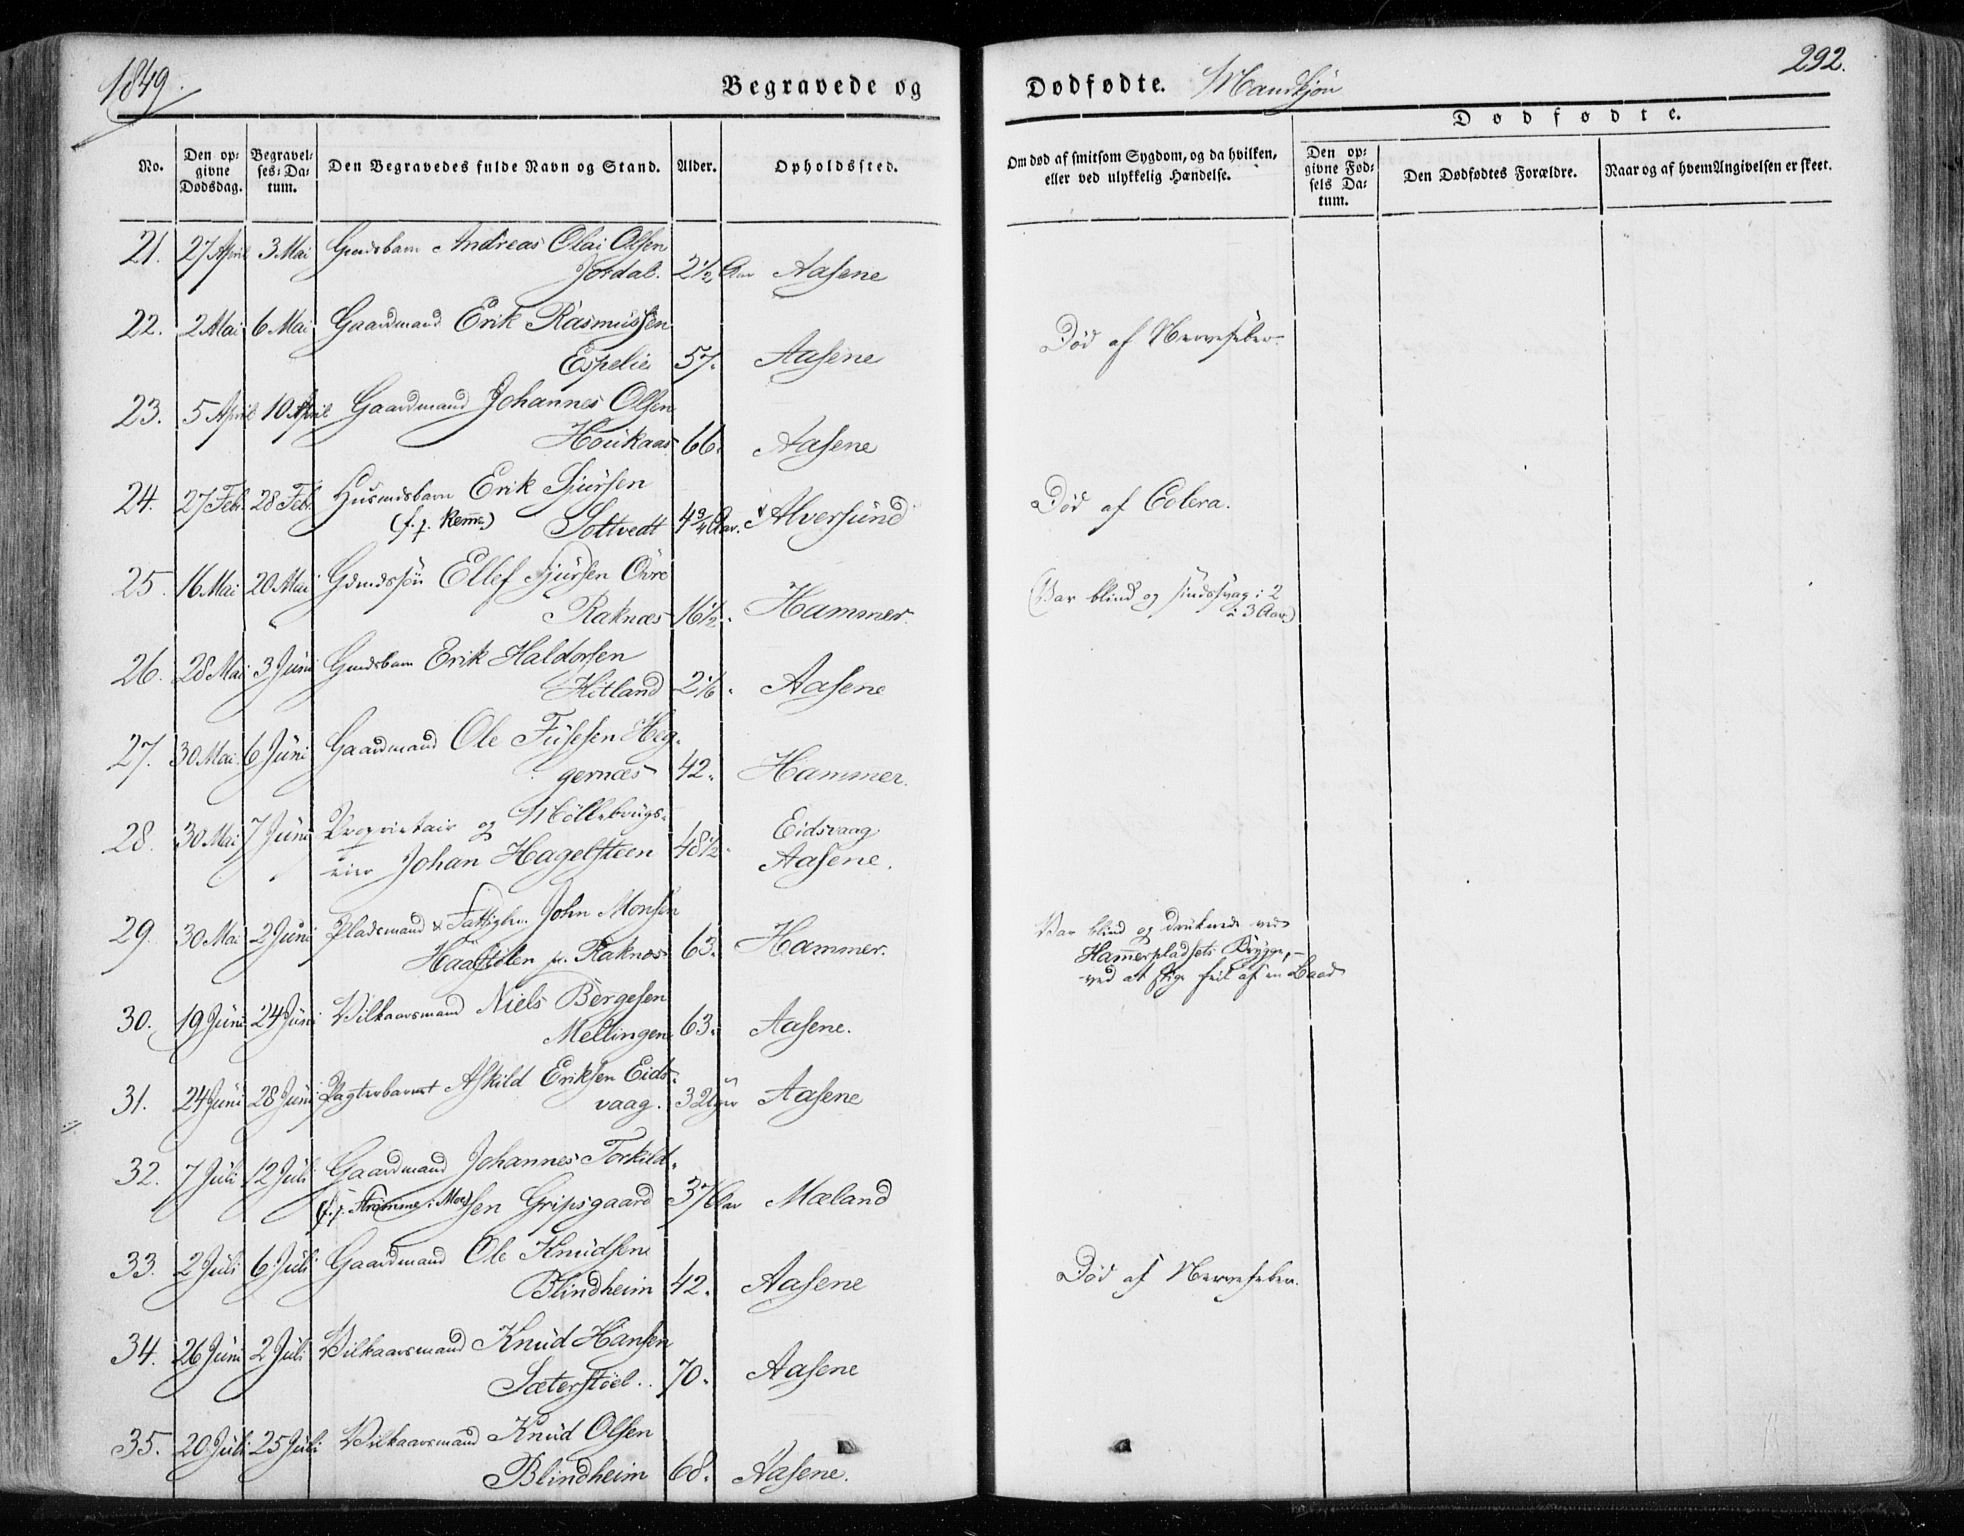 1849.
Begravede og
Dødfødte. Mandkjøn
292.
No.
Den opgivne Dødsdag.
Begravelses-Datum.
Den Begravedes fulde Navn og Stand.
Alder.
Opholdssted.
Om død af smitsom Sygdom, og da hvilken, eller ved ulykkelig Hændelse.
Dødfødte.
Den opgivne Fødsels Datum.
Den Dødfødtes Forældre.
Naar og af hvem Angivelsen er skeet.
21. 27 April 3 Mai Gmdsbarn Andreas Olai Olsen
Jordal. 2 1/2 Aar Aasene
22. 2 Mai 6 Mai Gaardmand Erik Rasmussen
Espelie 57. Aasene Død af Nervefeber.
23. 5 April 10 April Gaardmand Johannes Olsen
Houkaas 66. Aasene
24. 27 Feb. 28 Feb. Husmdsbarn Erik Sjursen
(f. p. Remme) Soltvedt 4 3/4 Aar. Alversund Død af Colera.
25. 16 Mai 20 Mai Gdmdssøn Ellef Sjursen Øvre
Raknæs 16 1/2. Hammer. (Var blind og sindssvag i 2
à 3 Aar)
26. 28 Mai 3 Juni Gmdsbarn Erik Haldorsen
Hitland 2 1/6. Aasene
27. 30 Mai 6 Juni Gaardmand Ole Fusesen Heg-
gernæs 42. Hammer.
28. 30 Mai 7 Juni Proprietair og Möllebrugs-
eier Johan Hagelsteen 48 1/2. Eidsvaag
Aasene.
29. 30 Mai 2 Juni Pladsmand & Fattiglem John Monsen
Haastölen p. Raknæs 63. Hammer. Var blind og druknede ved
Hammerpladsets Brygge,
ved at stige feil af en Baad
30. 19 Juni 24 Juni Vilkaarsmand Niels Børgesen
Mellingen 63. Aasene.
31. 24 Juni 28 Juni Pagterbarnet Askild Eriksen Eids-
vaag. 3 Uger Aasene
32. 7 Juli 12 Juli Gaardmand Johannes Torkild-
(f. p. Strømme i Moe) sen Gripsgaard 37 Aar Mæland
33. 2 Juli 6 Juli Gaardmand Ole Knudsen
Blindheim 42. Aasene Død af Nervefeber.
34. 26 Juni 2 Juli Vilkaarsmand Knud Hansen
Sæterstöel. 70. Aasene
35. 20 Juli 25 Juli Vilkaarsmand Knud Olsen
Blindheim 68. Aasene.